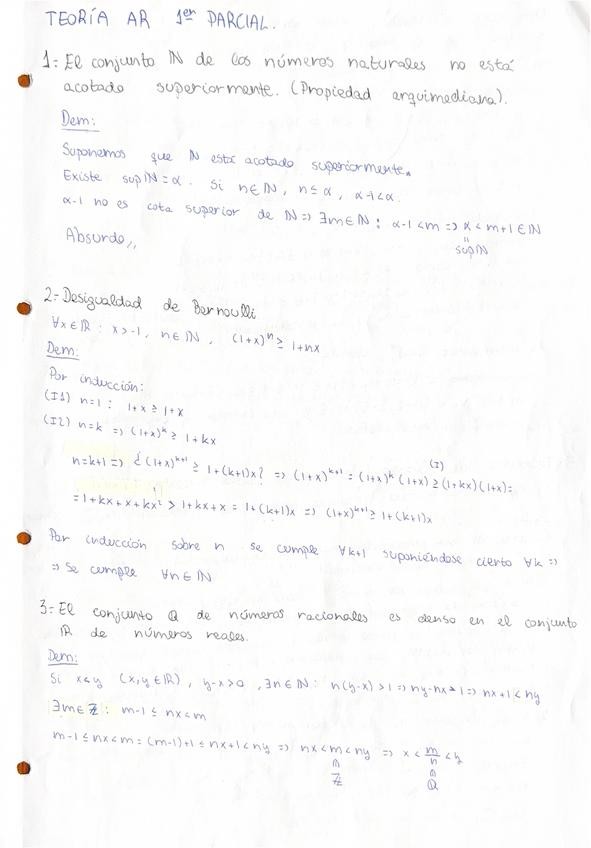 TEORÍA AR 1er PARCIAL.
1= El conjunto ℕ de los números naturales no está
acotado superiormente. (Propiedad arquimediana).
Dem:
Suponemos que ℕ está acotado superiormente.
Existe supℕ = α. Si n∈ℕ, n≤α, α-1<α.
α-1 no es cota superior de ℕ => ∃m∈ℕ: α-1<m => α<m+1∈ℕ
"
supℕ
Absurdo,,
2= Desigualdad de Bernoulli
∀x∈ℝ: x>-1, n∈ℕ, (1+x)^n ≥ 1+nx
Dem:
Por inducción:
(I1) n=1: 1+x ≥ 1+x
(I2) n=k => (1+x)^k ≥ 1+kx
n=k+1 => ¿(1+x)^(k+1) ≥ 1+(k+1)x? => (1+x)^(k+1) = (1+x)^k (1+x) ≥(I) (1+kx)(1+x)=
=1+kx+x+kx² > 1+kx+x = 1+(k+1)x => (1+x)^(k+1) ≥ 1+(k+1)x
Por inducción sobre n se cumple ∀k+1 suponiéndose cierto ∀k =>
=> Se cumple ∀n∈ℕ
3= El conjunto ℚ de números racionales es denso en el conjunto
ℝ de números reales.
Dem:
Si x<y (x,y∈ℝ), y-x>0, ∃n∈ℕ: n(y-x)>1 => ny-nx>1 => nx+1<ny
∃m∈ℤ: m-1≤nx<m
m-1≤nx<m=(m-1)+1≤nx+1<ny => nx<m<ny => x<m/n<y
∩ ∩
ℤ ℚ